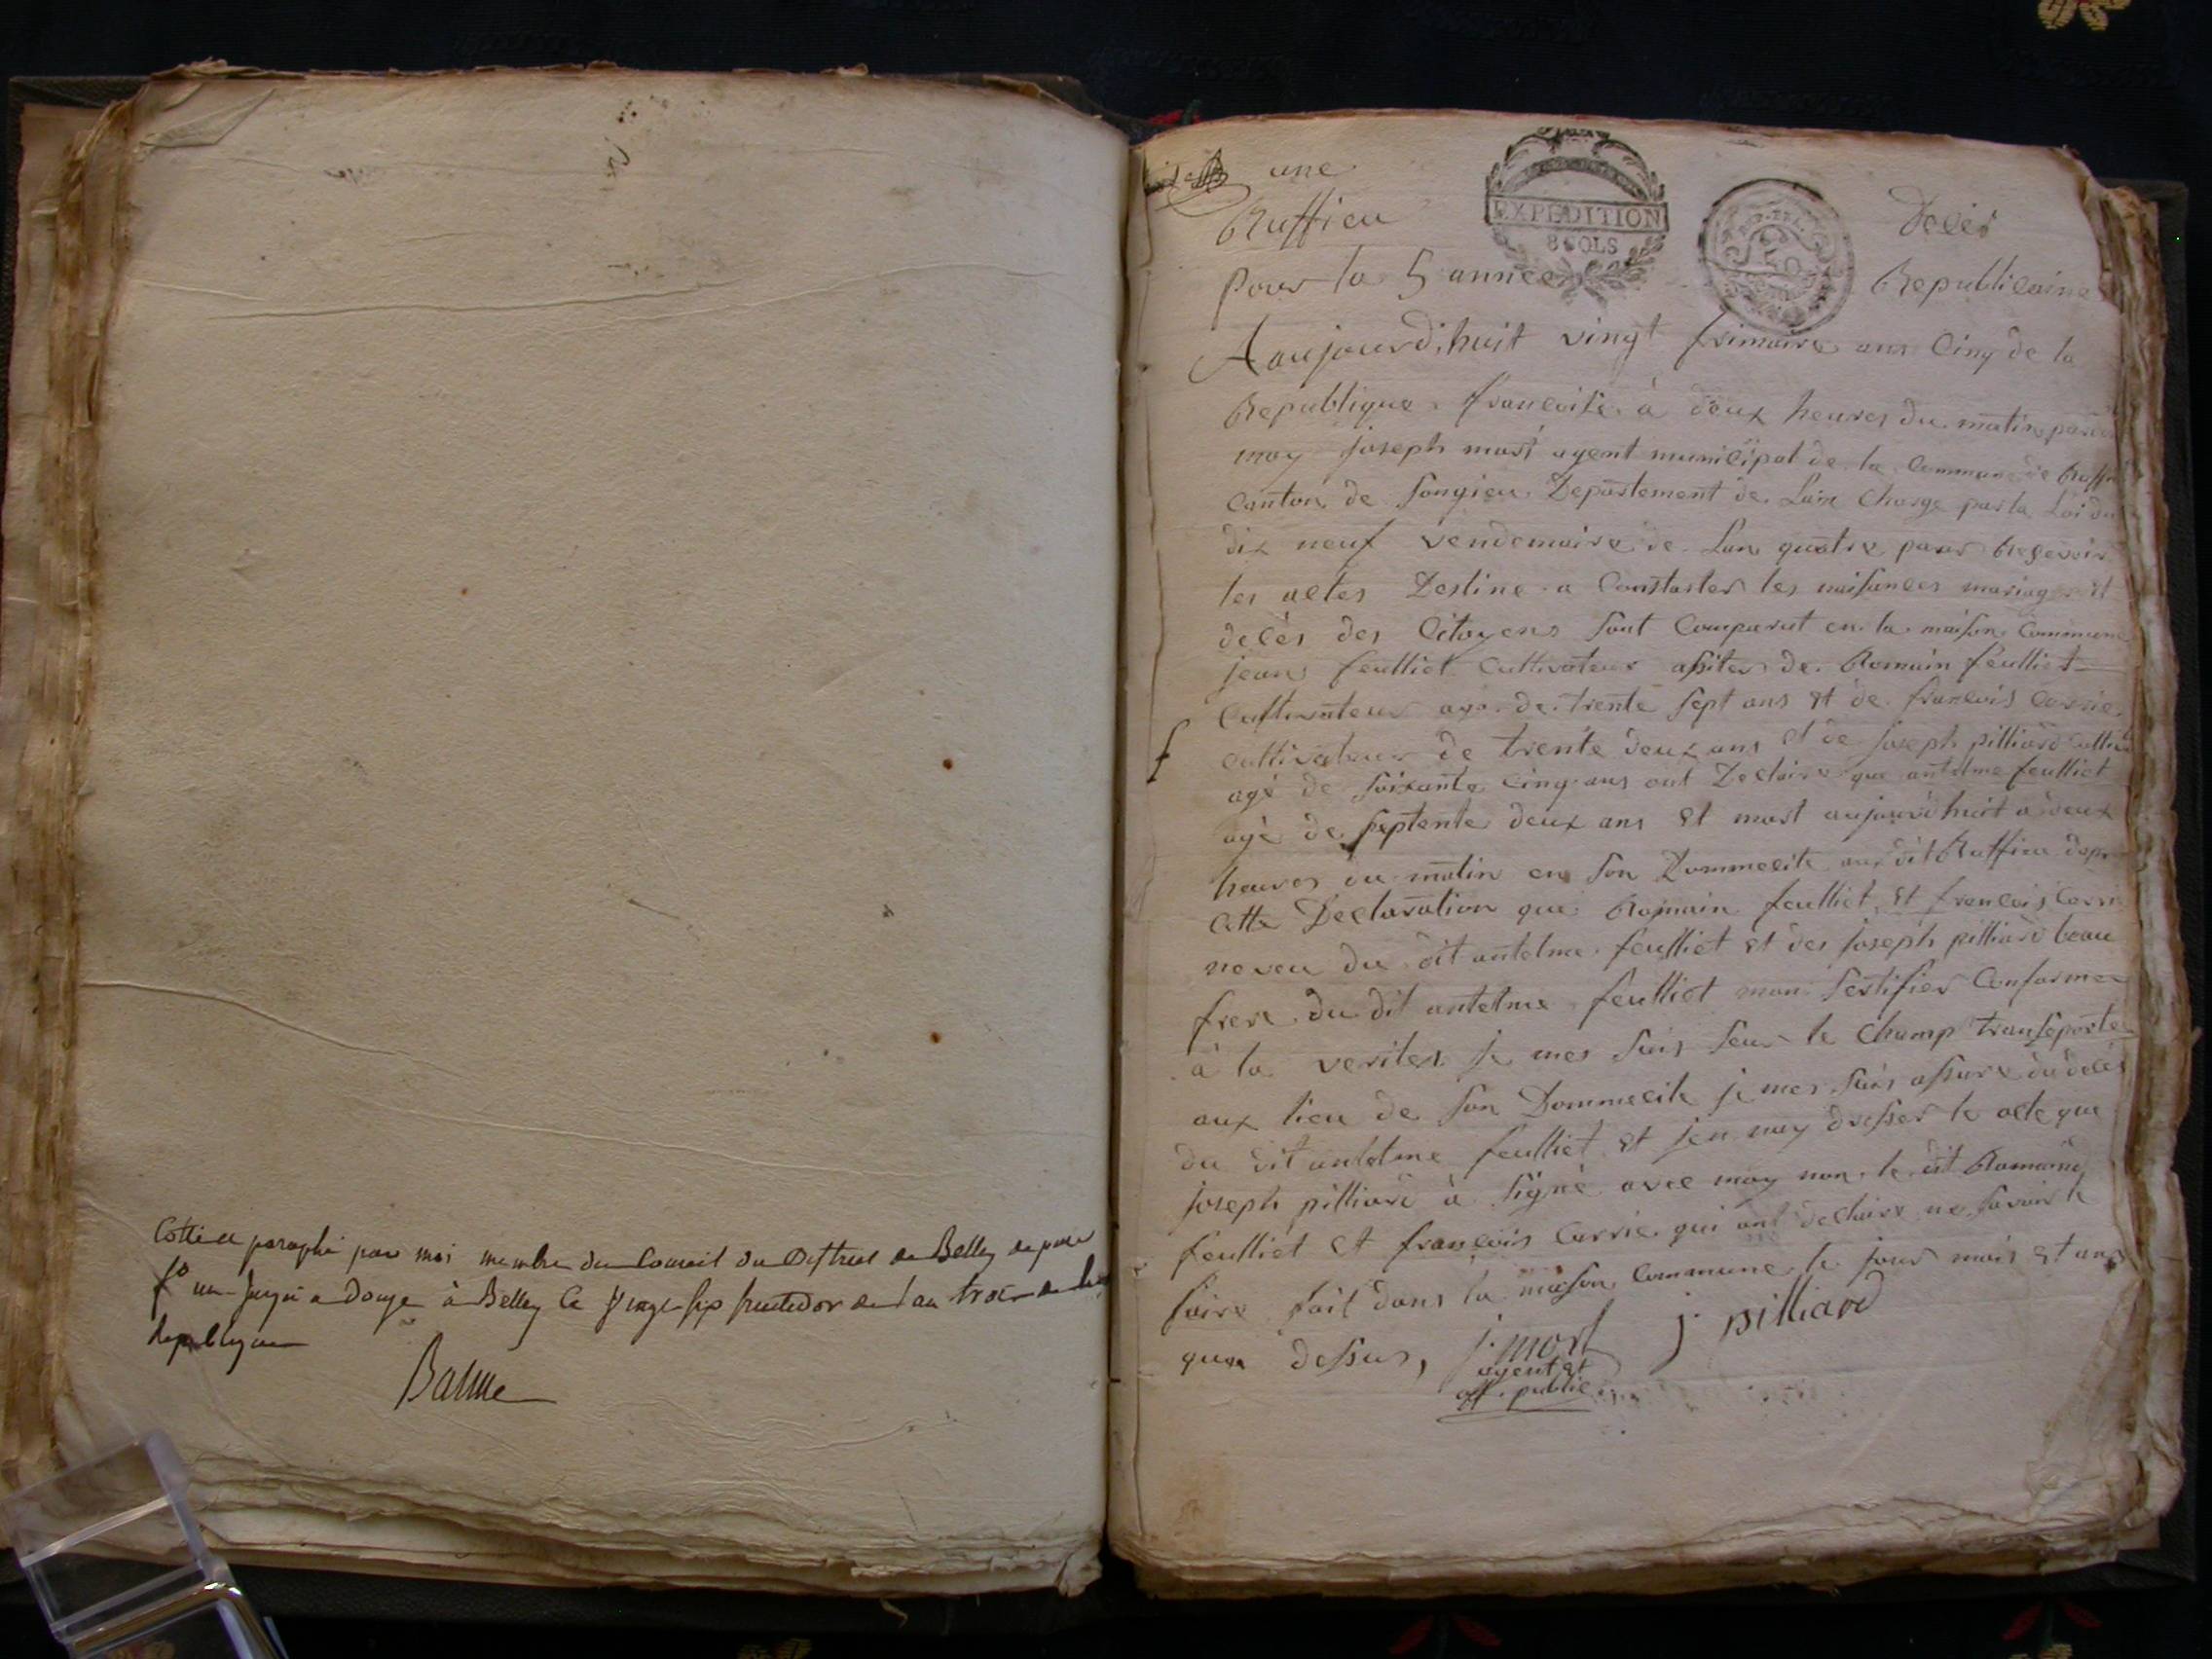 Cotté et paraphé par moi membre du Conseil du District de Belley depuis
f° un jusqu'a douze à Belley Ce vingt six fructidor de l'an trois de la
Republique
Balme
une
Ruffieu Décés
EXPEDITION
8 SOLS
Pour la 5 année Republicaine
Aaujourd,huit vingt frimaire ans Cinq de la
Republique francoise à deux heures du matin
moy joseph mort agent municipal de la Commune de Ruffi
Canton de Songieu Departement de Lain Charge par la Loi du
dix neuf vendemaire de Lan quatre pour Resevoir
les actes Destine a Constaster les naisances mariages et
decès des Citoyens sont Comparut en la maison Commune
jean feulliet Cultivateur assiter de Romain feulliet
Cultivateur age de trente sept ans et de francois Carrie
cultivateur de trente deux ans et de joseph pilliard Cultiva
agé de soixante cinq ans ont Declaire que antelme feulliet
agé de septente deux ans et mort aujourdhuit a deux
heures du matin en son Dommecile audit Ruffieu
Cette Declaration que Romain feulliet et francois Carri
neveu du dit antelme feulliet et des joseph pilliard beau
frere du dit antelme feulliet mon Sertifier Conformer
à la veriter je mes suis seur le Champ transeporte
aux lieu de son Dommecile je mes suis assure du décés
du dit antelme feulliet et jen nay dresser le acte que
joseph pilliard à signé avec moy non le dit Romaind
feulliet et francois Carrie qui ont declaire ne savoir le
faire fait dans la maison Commune le jour mois et ans
que dessus, j. mort j. pilliard
agent et
off. public